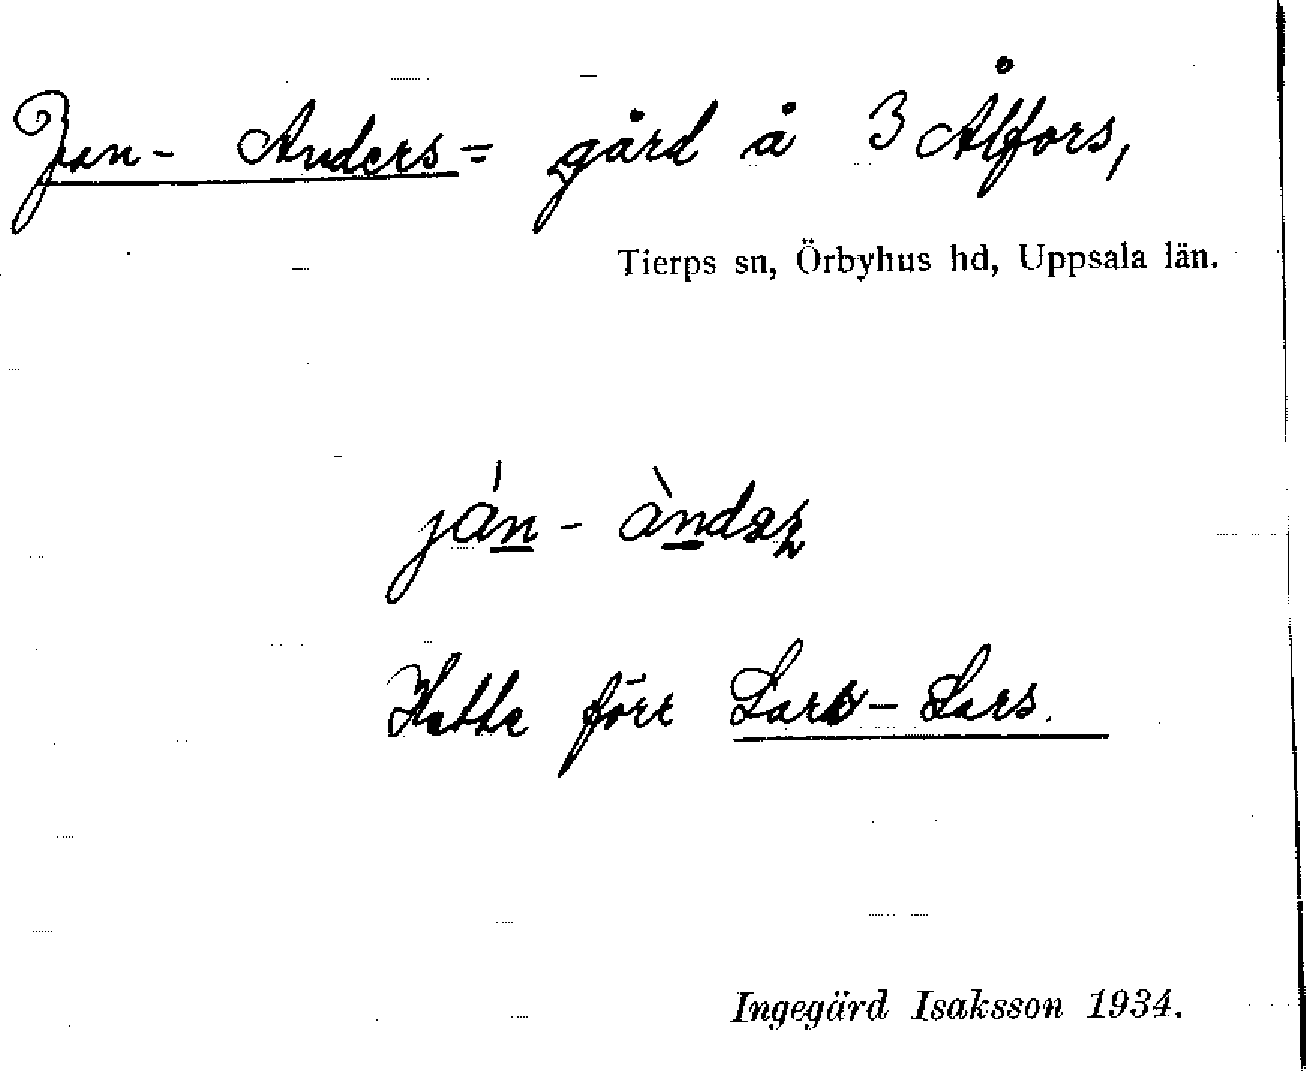 Jan- Anders= gård å 3 Ålfors,
Tierps sn, Örbyhus hd, Uppsala län.
ján - àndəʂ
Hette förr Lars - Lars.
Ingegärd Isaksson 1934.